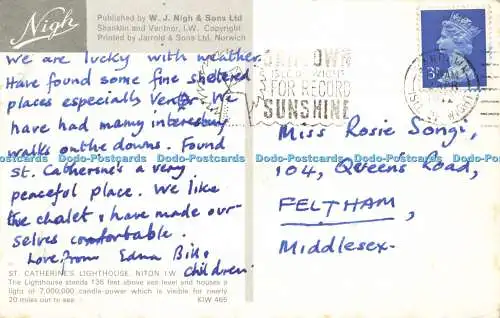 Nigh
Published by W. J. Nigh & Sons Ltd
Shanklin and Ventnor, I.W. Copyright
Printed by Jarrold & Sons Ltd, Norwich
We are lucky with weather.
Have found some fine sheltered
places especially We
have had many interesting
walks on the downs. Found
St. Catherine's a very
peaceful place. We like
the chalet & have made our-
selves comfortable.
Love from Edna Bill &
children.
ST. CATHERINE'S LIGHTHOUSE, NITON I.W.
The Lighthouse stands 136 feet above sea level and houses a
light of 7,000,000 candle-power which is visible for nearly
20 miles out to sea
KIW 465
SANDOWN
ISLE OF WIGHT
FOR RECORD
SUNSHINE
3P
Miss Rosie Songs,
104, Queen's Road,
FELTHAM,
Middlesex.
Dodo-Postcards Dodo-Postcards Dodo-Postcards Dodo-Postcards Dodo-Postcards